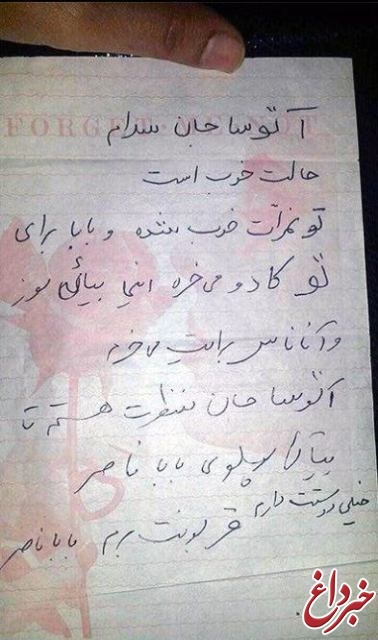 FORGET ME NOT
آتوسا جان سلام
حالت خوب است
تو نمرات خوب شده و بابا برای
تو کادو می‌خره اینجا بیائی موز
و آناناس برایت می‌خرم
آتوسا جان منتظرت هستم تا
بیائی پهلوی بابا ناصر
خیلی دوستت دارم قربونت برم بابا ناصر
خبرداغ